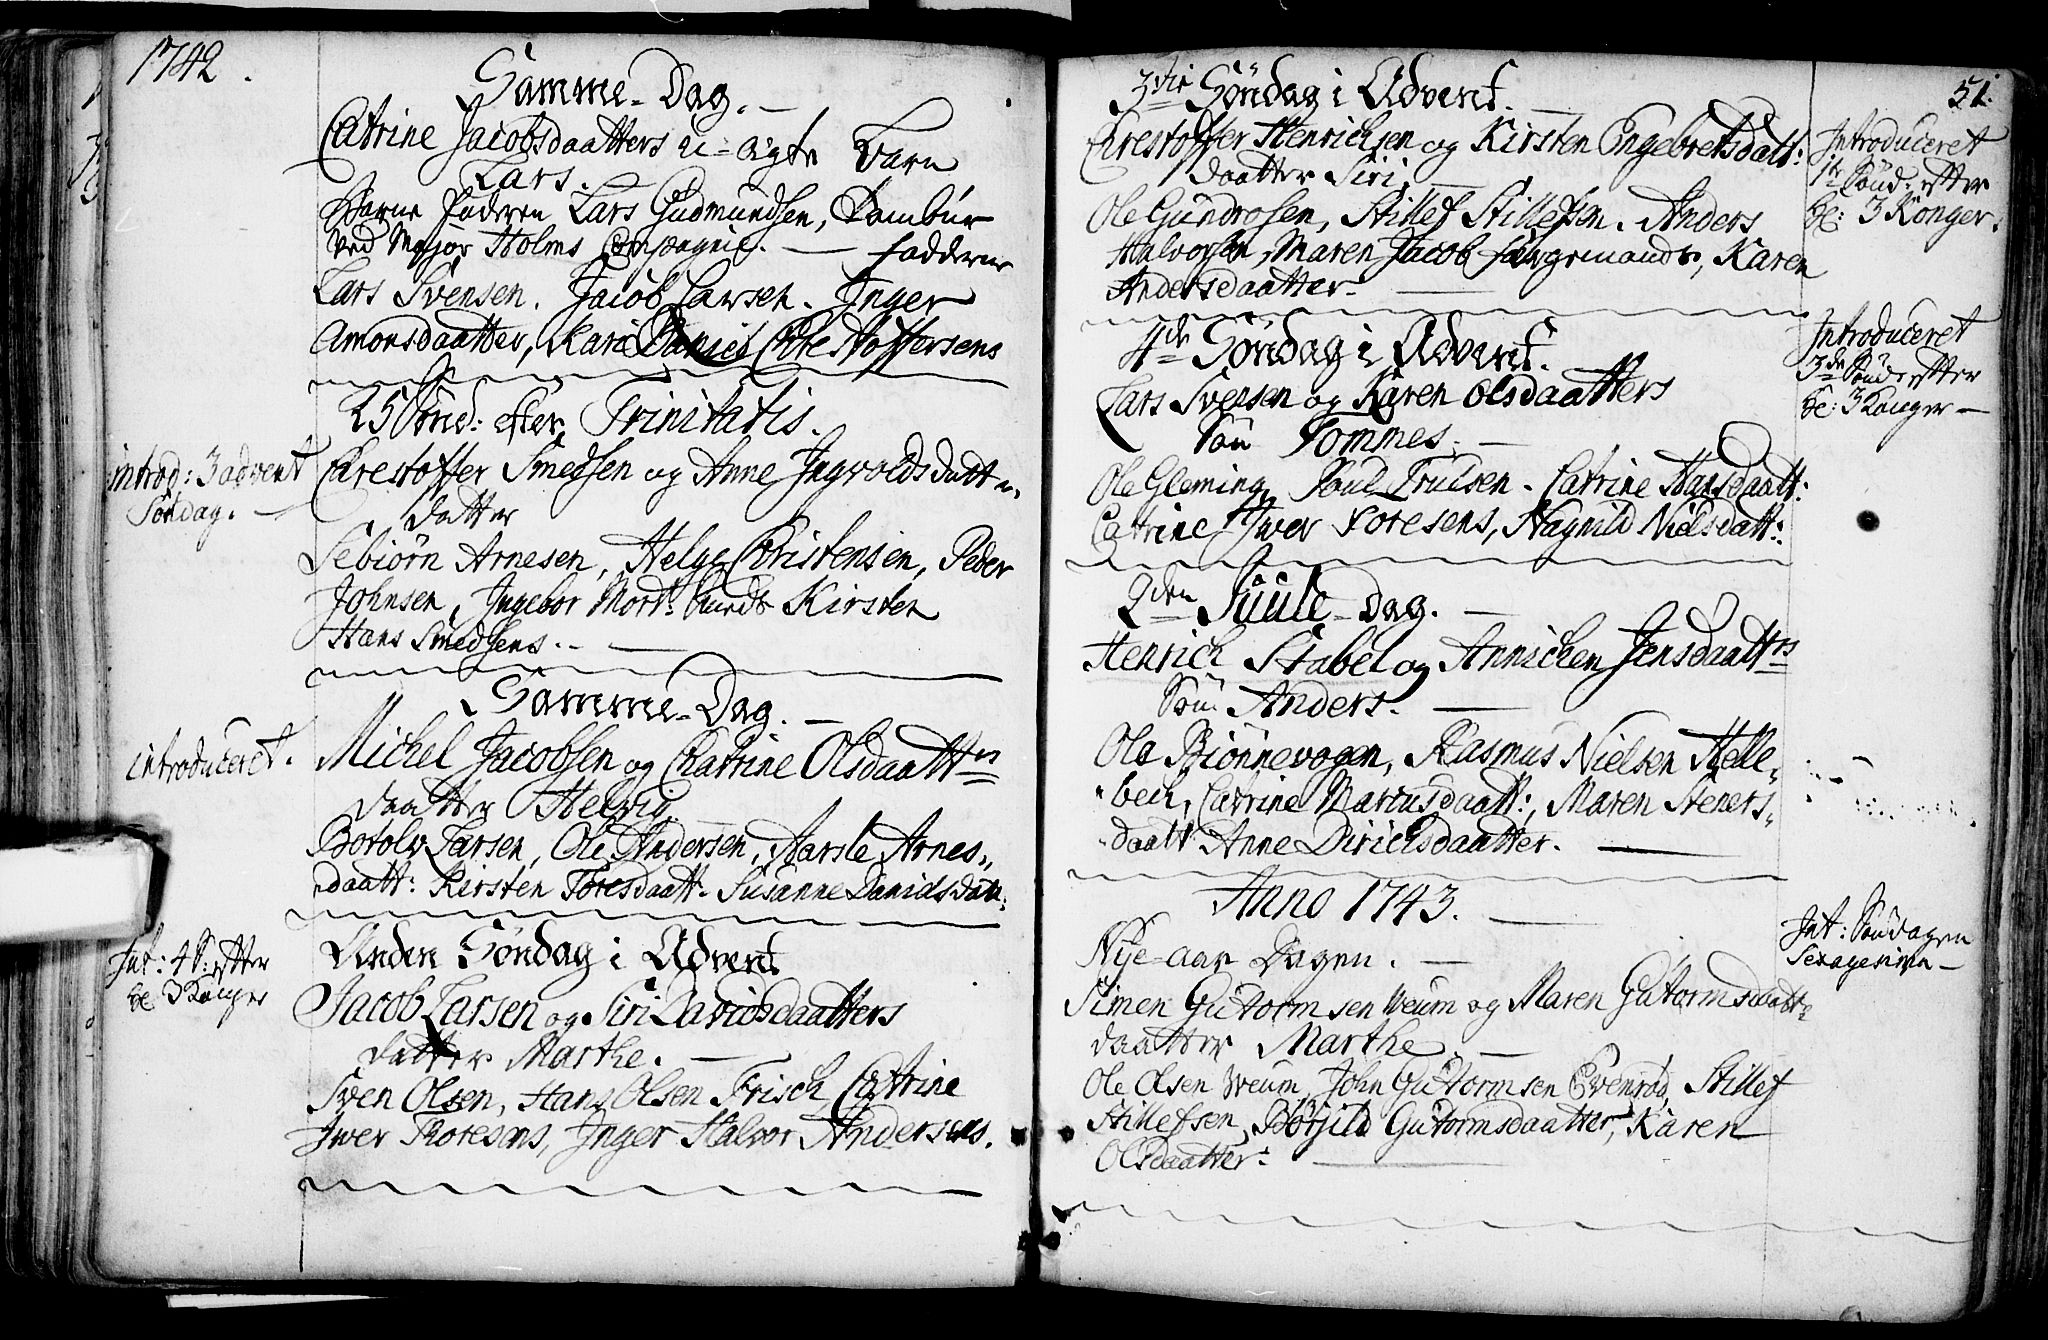 1742.
Samme-Dag.
Catrine Jacobsdaatters u-ægte Barn
Lars.
Barne Faderen Lars Gudmundsen, Tambur
ved Major Holms Compagnie. — Faddere
Lars Svensen. Jacob Larsen. Inger
Amonsdaatter, Kari Christoffersens
25 Sönd: efter Trinitatis.
introd: 3 advent
Söndag.
Chrestoffer Smedsen og Anne Ingvoldsdaatt
datter
Sebiörn Arnesen, Helge Christensen, Peder
Johnsen, Ingebor Mort: Kirsten
Hans Smedsens.
Samme-Dag.
introduceret.
Michel Jacobsen og Chatrine Olsdaattrs
daatter Helvig.
Botolv Larsen, Ole Andersen, Aarste Arnes„
„daatt: Kirsten Toresdaatt. Susanne Danidsdatt:
Int: 4 S: efter
he: 3 Konger
Anden Söndag i Advent
Jacob Larsen og Siri Davidsdaatters
datter Marthe.
Sven Olsen, Hans Olsen Frisch, Catrine
Iver Thoresens, Inger Halvor Andersens.
51.
3die Söndag i Advent.
Introduceret
1te Sönd: efter
he: 3 Konger.
Chrestoffer Henrichsen og Kirsten Engebretsdatt:
daatter Siri.
Ole Gundrosen, Stillef Stillefsen. Anders
Halvorsen, Maren Jacob færgemands, Karen
Andersdaatter.
4de Söndag i Advent.
Introduceret
3de Sönd: efter
he: 3 Konger —
Lars Svensen og Karen Olsdaatters
Sön Tommes.
Ole Gleming, Poul Trulsen. Catrine Hansdaatt:
Catrine Iver Toresens, Hagnild Nielsdatt:
2den Juule-Dag.
Henrich Stabel og Annichen Jensdaattrs
Sön Anders.
Ole Biönnevogen, Rasmus Nielsen Helle„
„bech, Catrine Mariusdaatt:, Maren Steners„
„daatt Anne Dirichsdaatter.
Anno 1743.
Nye-aar Dagen.
Int: Söndagen
Sexagesima —
Simen Gutormsen Veum og Maren Gutormsdaatt
daatter Marthe.
Ole Olsen Veum, John Gutormsen Evenröd, Stillef
Stillefsen, Börsild Gutormsdaatter, Karen
Olsdaatter.